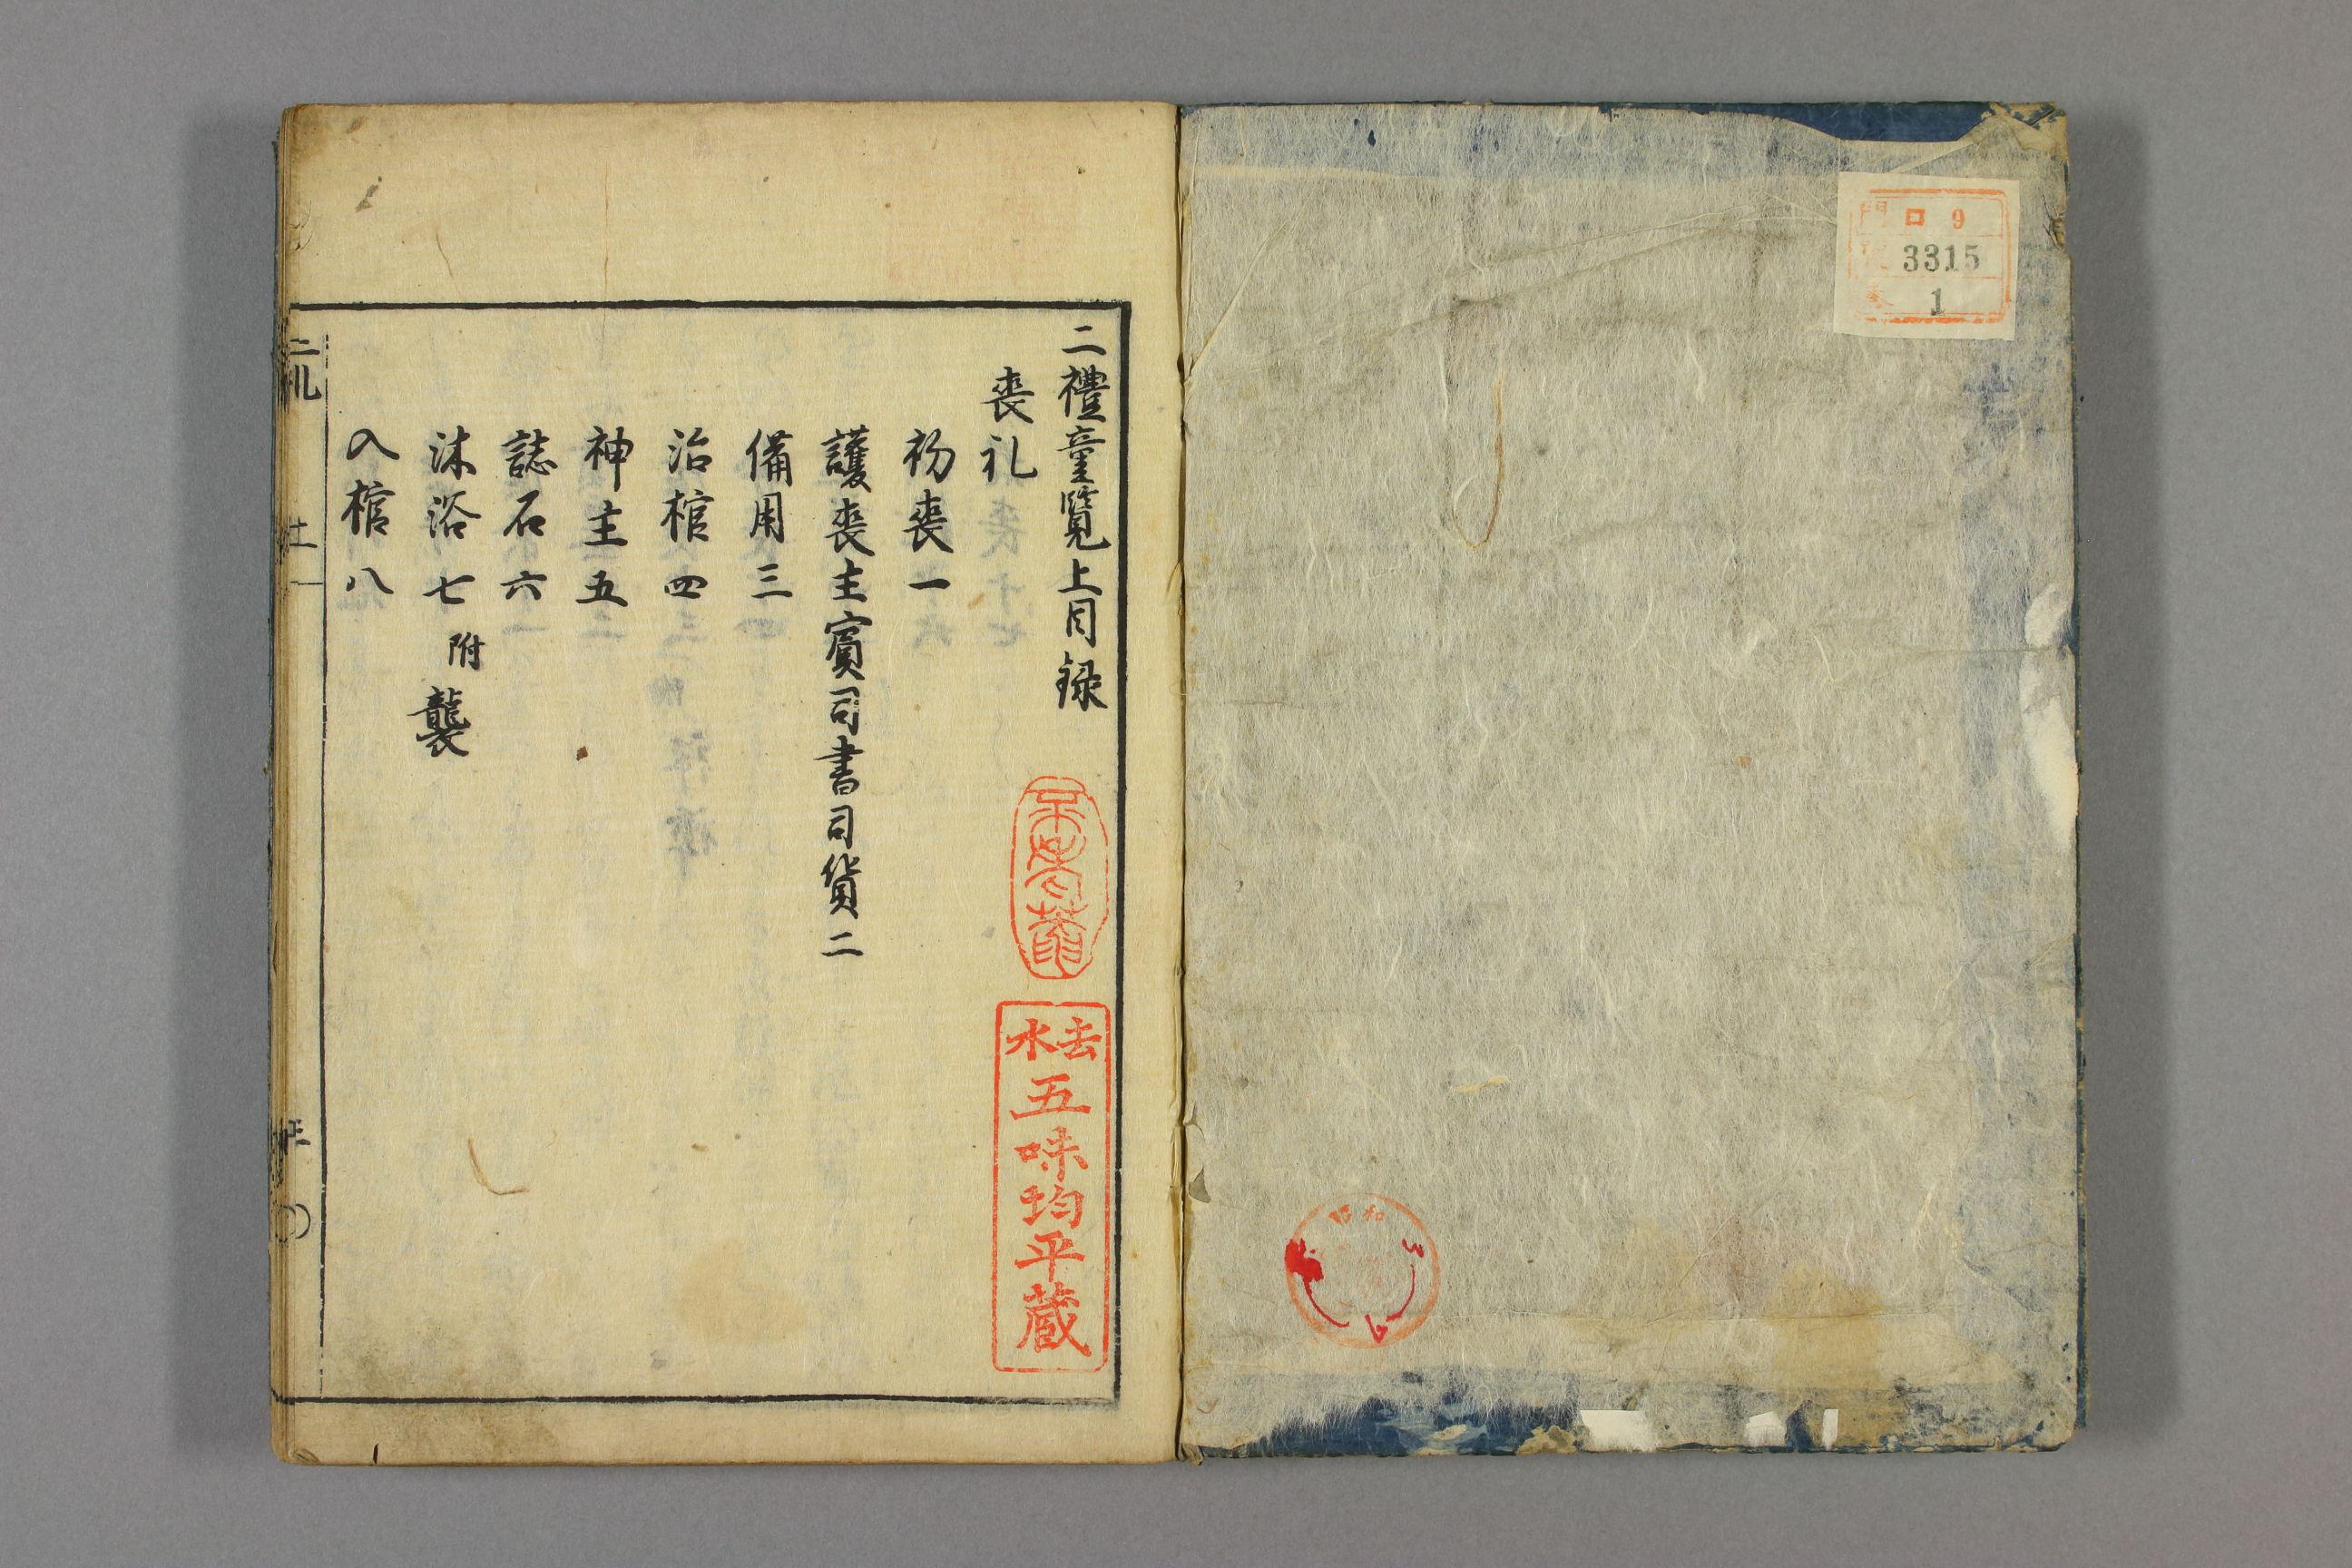 口 9
3315
1
二禮童覧上目録
喪礼
初喪一
護喪主賓司書司貨二
備用三
治棺四
神主五
誌石六
沐浴七 附 襲
入棺八
去水
五味均平蔵